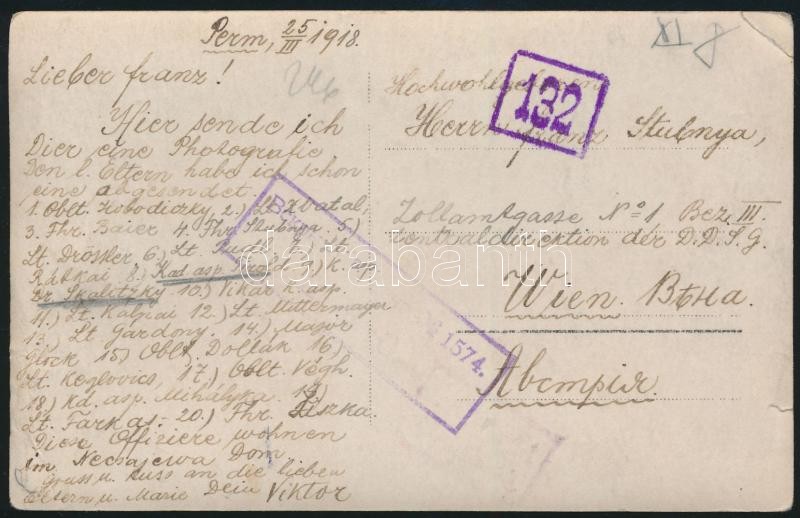 Perm, 25/III 1918.
Lieber Franz!
Hier sende ich
Dier eine Photografie
Den l. Eltern habe ich schon
eine abgesendet.
1. Oblt. Hobodiczky, 2.) Lt.
3. Fhr. Baier 4. Fhr. Stubnya 5.)
Lt. Drössler 6.) Lt.
Rátkai 8.) Kad. asp. 9.) K. asp.
Dr. Skalitzky 10.) Vikár K. asp.
11.) Lt. Kalpiai 12.) Lt. Mittermayer
13.) Lt Gárdony. 14.) Major
Glock 15.) Oblt. Dollák 16.)
Lt. Kezlovics, 17.) Oblt. Végh.
18.) Kd. asp. Mihályka 19.)
Lt. Farkas - 20.) Fhr. Liszka.
Diese Offiziere wohnen
im Neczajewa Dom.
Gruss u. Kuss an die lieben
Eltern u. Marie Dein Viktor
XI
132
Hochwohlgeboren
Herrn Franz Stubnya,
Zollamtgasse No 1 Bez. III.
Centraldirektion der D.D.S.G.
Wien. Вѣна.
Австрія.
1574.
darabanth